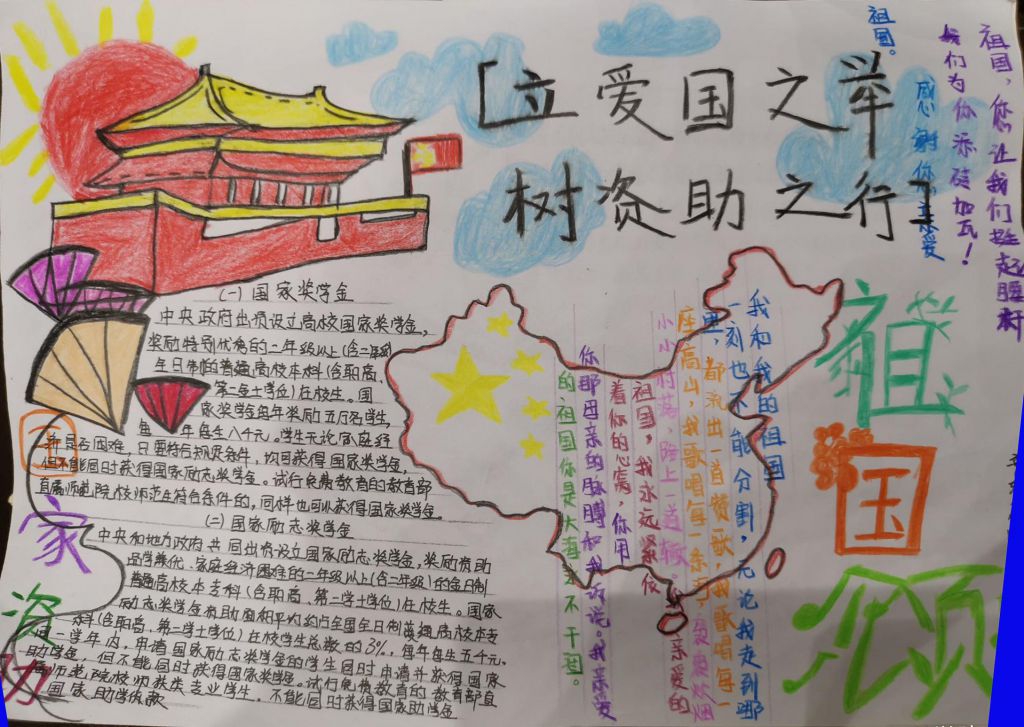 [立爱国之举
树资助之行]
祖国,您让我们挺起腰杆
我们为你添砖加瓦!
感谢你,亲爱
祖国。
(一)国家奖学金
中央政府出资设立高校国家奖学金,
奖励特别优秀的二年级以上(含二年级)
全日制普通高校本科(含职高、
第二学士学位)在校生。国
家奖学金每年奖励五万名学生,
每年每生八千元。学生无论家庭经
济是否困难,只要符合规定条件,均可获得国家奖学金,
但不能同时获得国家励志奖学金。试行免费教育的教育部
直属师范院校师范生符合条件的,同样也可以获得国家奖学金
(二)国家励志奖学金
中央和地方政府共同出资设立国家励志奖学金,奖励资助
品学兼优、家庭经济困难的二年级以上(含二年级)的全日制
普通高校本专科(含职高、第二学士学位)在校生。国家
励志奖学金资助面积平均约占全国全日制普通高校本专
科(含职高、第二学士学位)在校学生总数的3%,每年每生五千元。
同一学年内,申请国家励志奖学金的学生同时申请并获得国家
助学金,但不能同时获得国家奖学金。试行免费教育的教育部直
属师范院校师范类专业学生,不能同时获得国家励志奖学金
国家助学贷款
国
家
资
助
我和我的祖国
一刻也不能分割,无论我走到哪
里,都流出一首赞歌,我歌唱每一
座高山,我歌唱每一条河,袅袅炊烟
小小村落,路上一道辙。我亲爱的
祖国,我永远紧依
着你的心窝,你用
你那母亲的脉搏和我诉说。我亲爱
的祖国你是大海永不干涸。
祖
国
颂